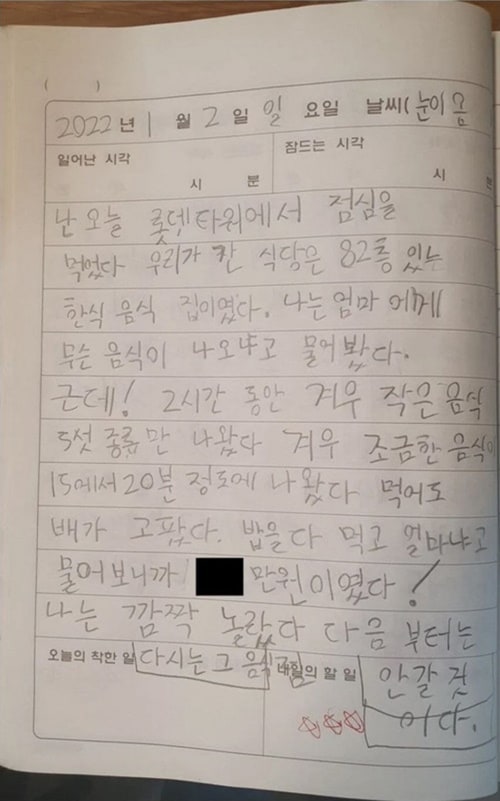 ( )
2022년 1월 2일 일요일 날씨(눈이 옴
일어난 시각 시 분 잠드는 시각 시
난 오늘 롯뎃타워에서 점심을
먹었다 우리가 간 식당은 82층 있는
한식 음식 집이였다. 나는 엄마 에게
무슨 음식이 나오냐고 물어봤다.
근데! 2시간 동안 겨우 작은 음식
5섯 종류만 나왔다 겨우 조금한 음식이
15에서 20분 정도에 나왔다 먹어도
배가 고팠다. 밥을 다 먹고 얼마냐고
물어보니까 만원이였다!
나는 깜짝 놀랐다 다음 부터는
오늘의 착한 일 다시는 그 음식집 내일의 할 일 안갈 것
이다.